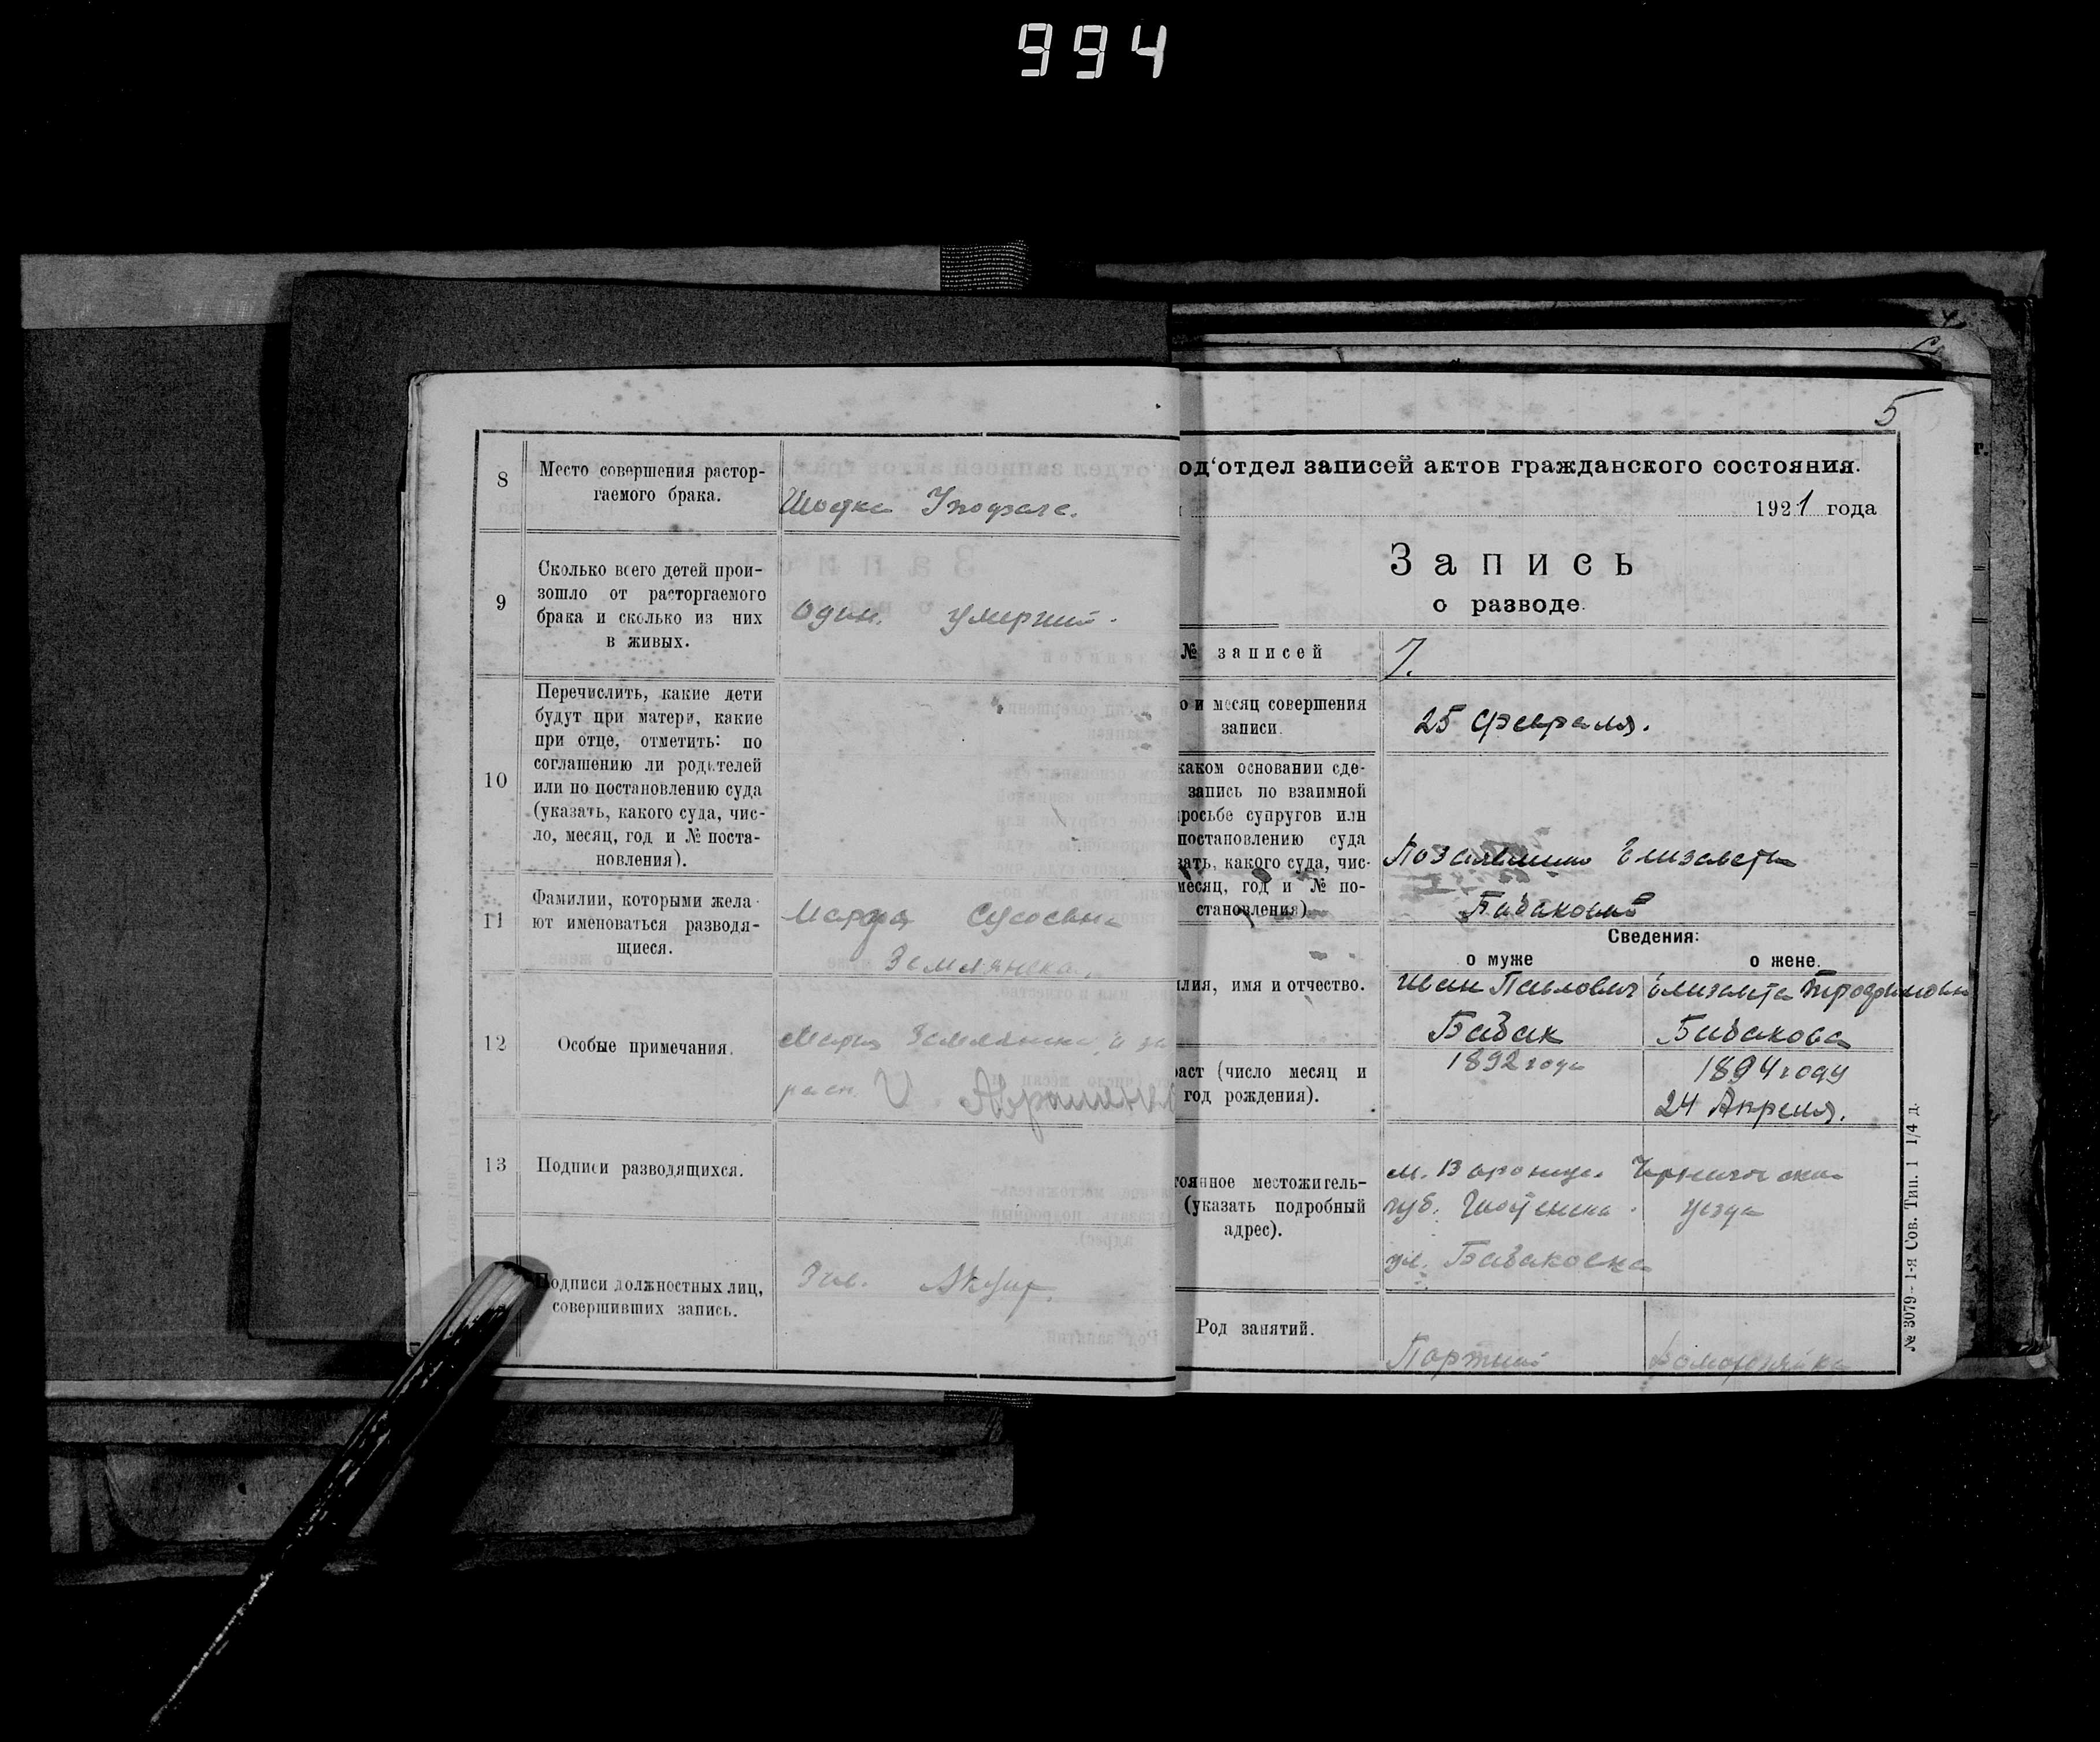 994
8
Место совершения растор-
гаемого брака.
9
Сколько всего детей прои-
зошло от расторгаемого
брака и сколько из них
в живых.
один. умерший.
10
Перечислить, какие дети
будут при матери, какие
при отце, отметить: по
соглашению ли родителей
или по постановлению суда
(указать, какого суда, чис-
ло, месяц, год и № поста-
новления).
11
Фамилии, которыми жела-
ют именоваться разводя-
щиеся.
12
Особые примечания.
13
Подписи разводящихся.
Подписи должностных лиц,
совершивших запись.
5
од'отдел записей актов гражданского состояния.
1921 года
Запись
о разводе.
№ записей
7.
о и месяц совершения
записи.
25 февраля.
каком основании сде-
запись по взаимной
росьбе супругов или
постановлению суда
зать, какого суда, чис-
месяц, год и № по-
становления)
По заявлению Елизаветы
Бабаковой
Сведения:
о муже
о жене.
лия, имя и отчество.
Иван Павлович
Бабак
Елизавета Трофимовна
Бабакова
раст (число месяц и
год рождения).
1892 года
1894 году
24 Апреля.
тоянное местожитель-
(указать подробный
адрес).
губ.
уезда
ул. Бабаковка
Род занятий.
Портной
Домохозяйка
№ 3079 - 1-я Сов. Тип. 1 1/4 д.